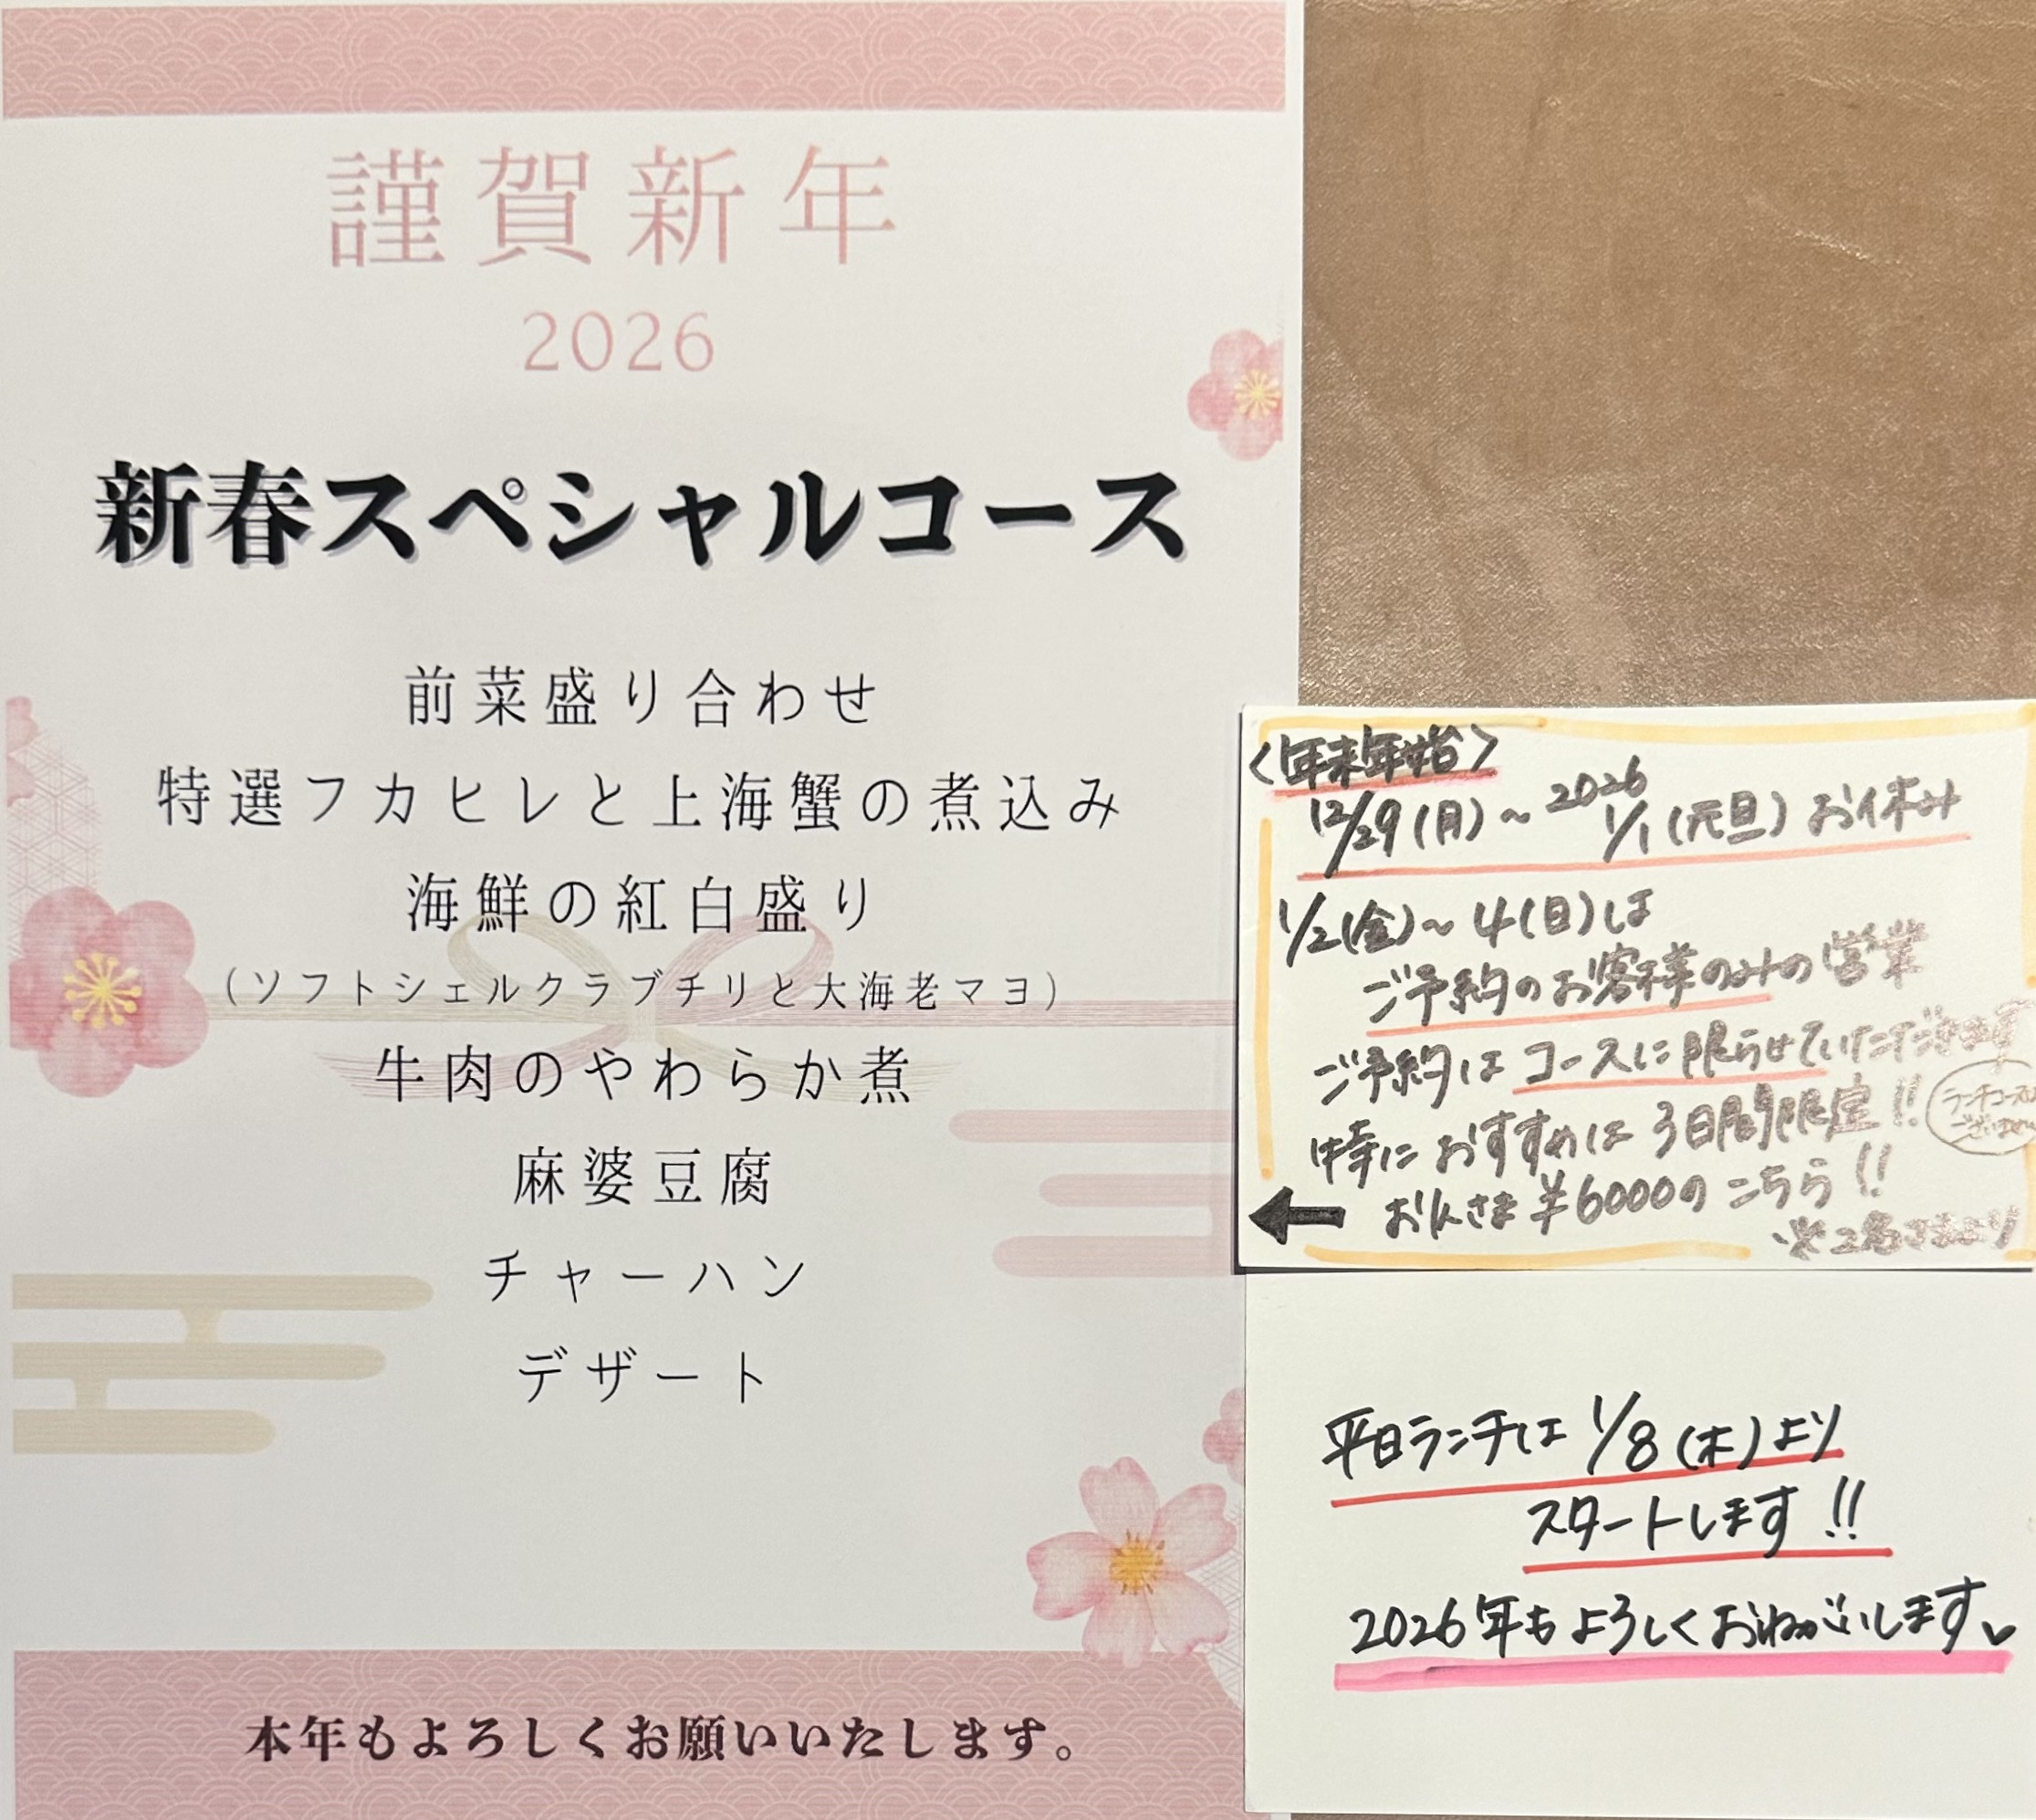 謹賀新年
2026
新春スペシャルコース
前菜盛り合わせ
特選フカヒレと上海蟹の煮込み
海鮮の紅白盛り
（ソフトシェルクラブチリと大海老マヨ）
牛肉のやわらか煮
麻婆豆腐
チャーハン
デザート
本年もよろしくお願いいたします。
〈年末年始〉
12/29(月)～2026 1/1(元旦)お休み
1/2(金)～4(日)は
ご予約のお客様のみの営業
ご予約はコースに限らせていただきます
特におすすめは3日間限定!!
ランチコースは
ございません
お1人さま¥6000のこちら!!
※2名さまより
平日ランチは1/8(木)より
スタートします!!
2026年もよろしくおねがいします